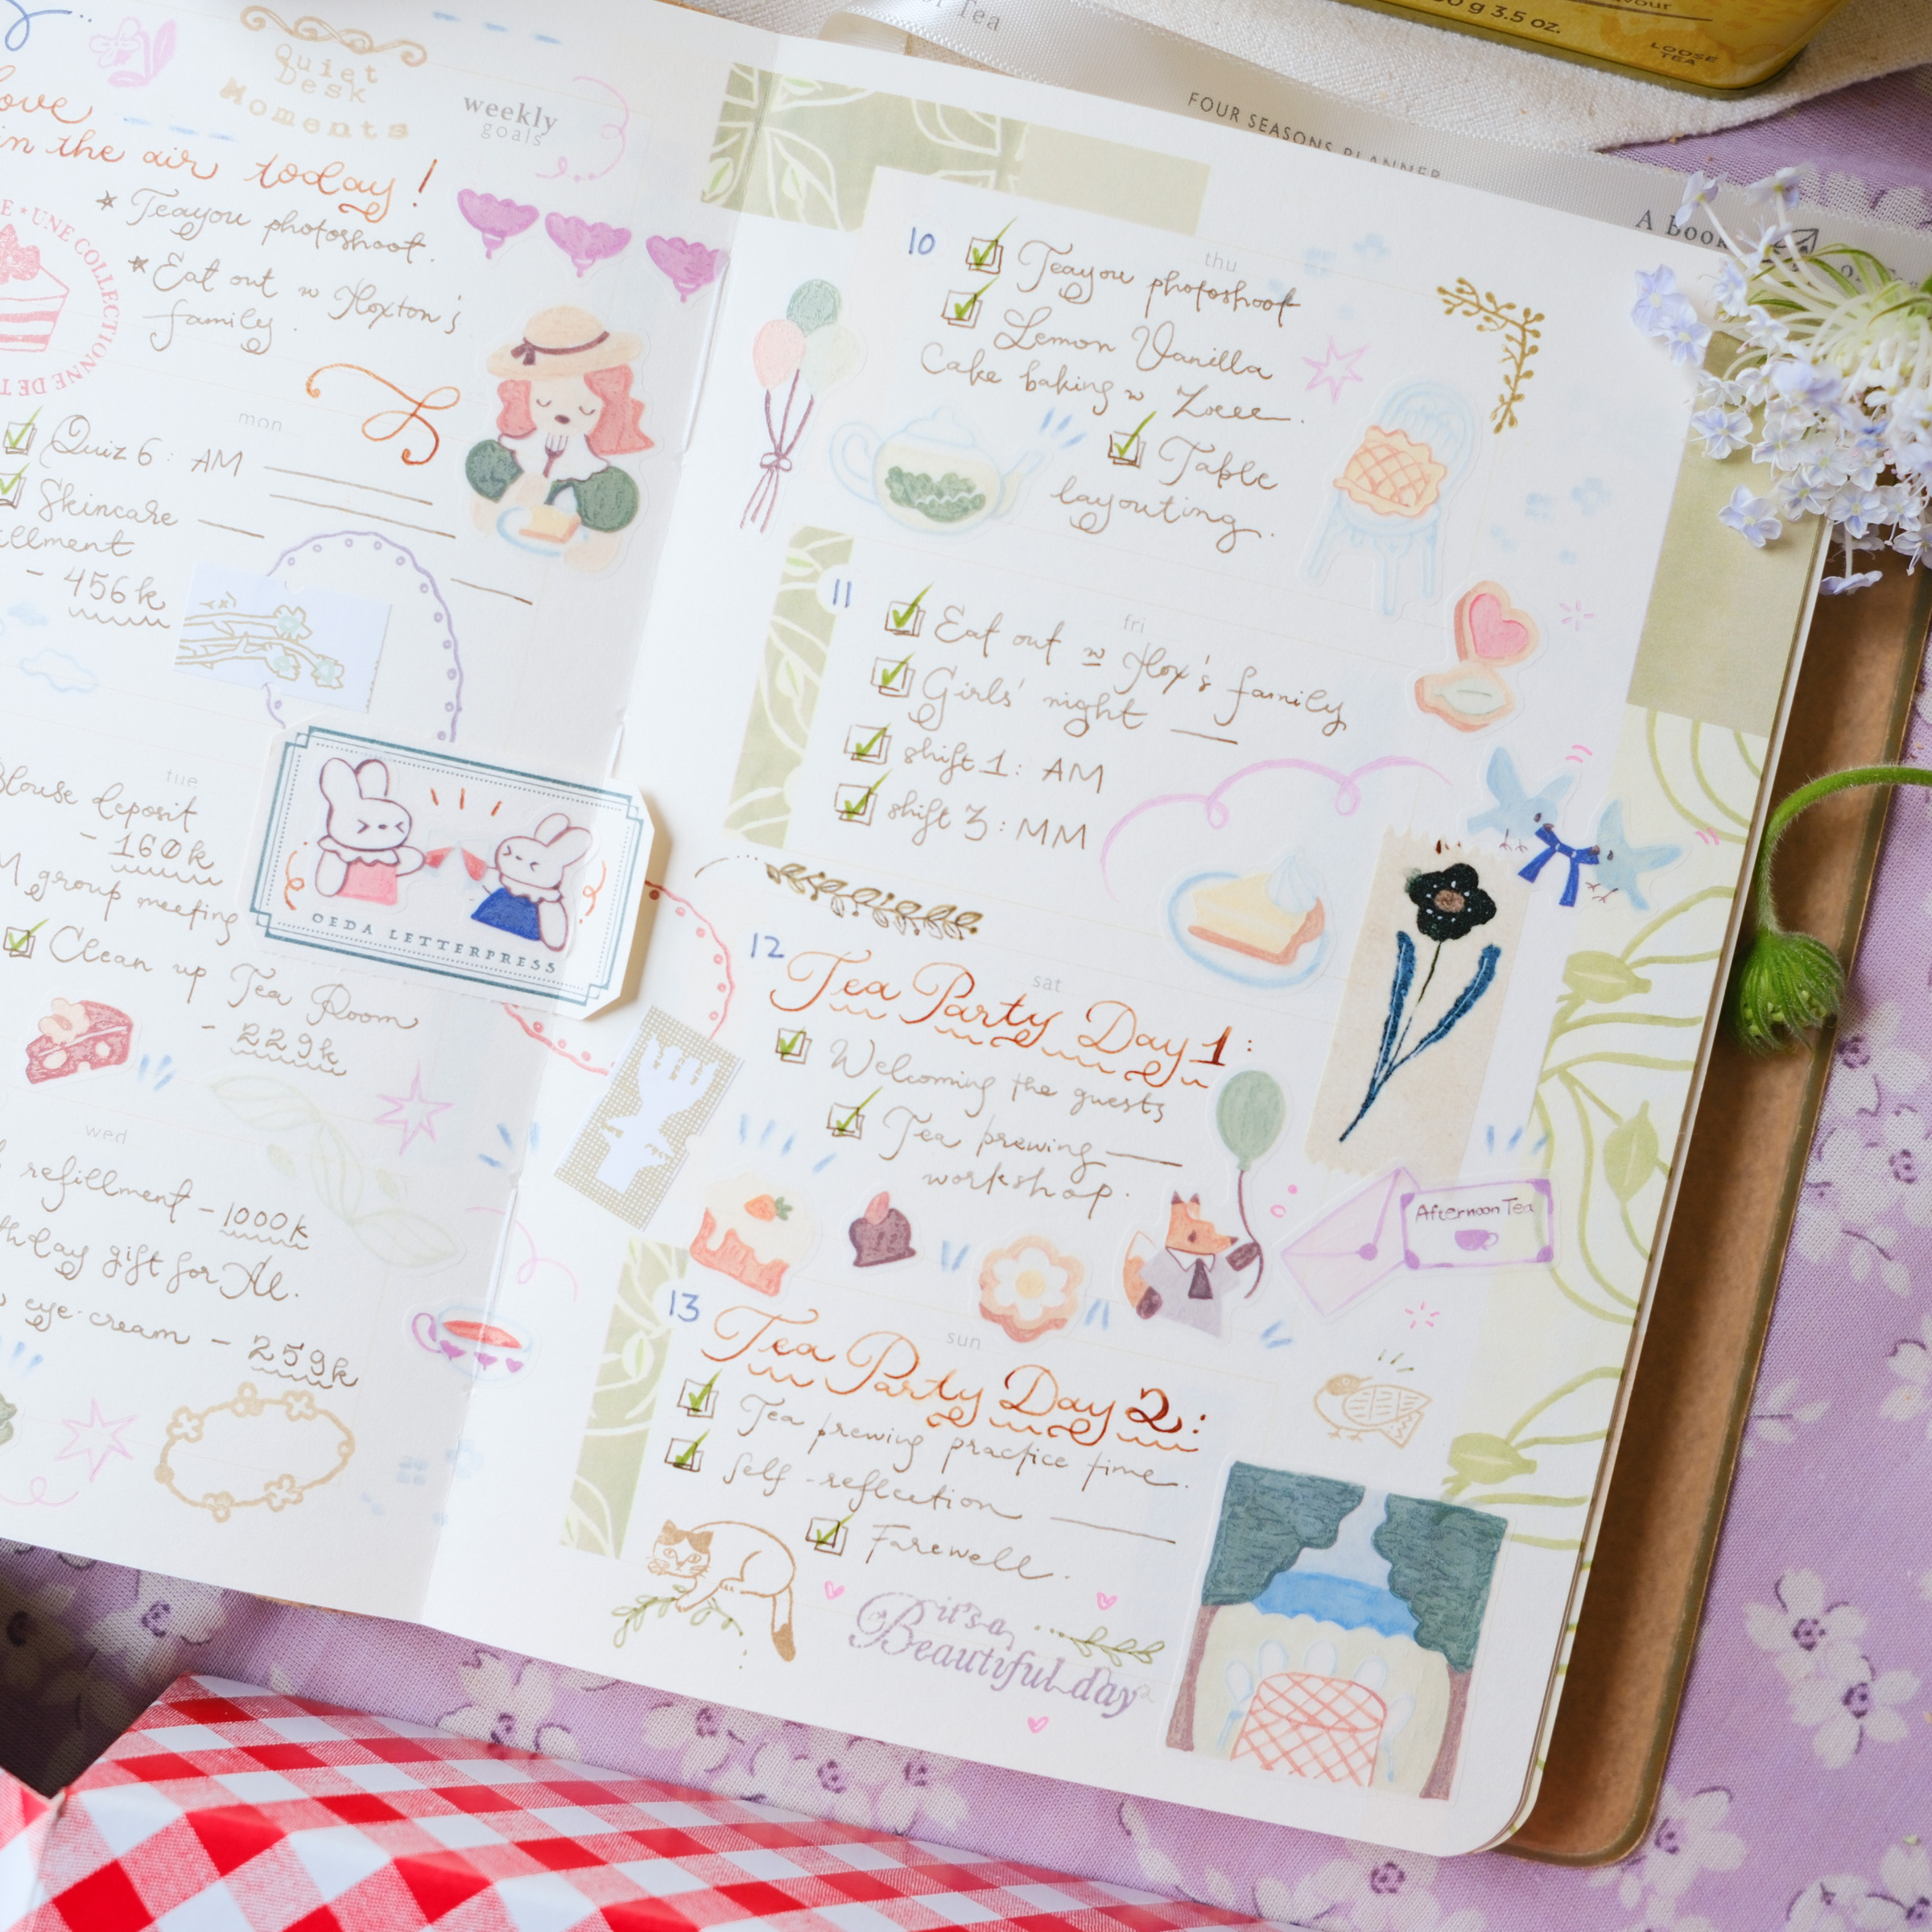 Quiet
Desk
Moments
weekly
goals
in the air today!
* Teayou photoshoot.
* Eat out w Hoxton's
family.
UNE COLLECTIONNE DE
mon
Quiz 6: AM
Skincare
- 456k
tue
deposit
- 160k
group meeting
Clean up Tea Room
- 229k
OEDA LETTERPRESS
wed
refillment - 1000k
gift for Al.
eye cream - 259k
of Tea
3.5 oz.
LOOSE
TEA
FOUR SEASONS PLANNER
A book
10
thu
Teayou photoshoot
Lemon Vanilla
Cake baking w Zoeee.
Table
layouting.
11
fri
Eat out w Hox's family
Girls' night
shift 1: AM
shift 3: MM
12
sat
Tea Party Day 1:
Welcoming the guests
Tea prewing
workshop.
Afternoon Tea
13
sun
Tea Party Day 2:
Tea prewing practice time.
Self-reflection
Farewell.
it's a
Beautiful day